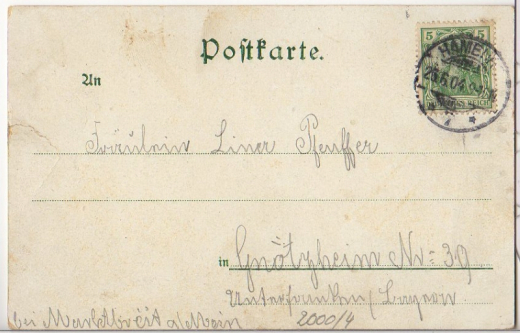 Postkarte.
5 5
HAMELN
25.6.04
REICH
An
Fräulein Liner Pfeuffer
in Gnötzheim Nr= 39
Unterfranken / Bayern
bei Marktbreit a/Main
2000/4